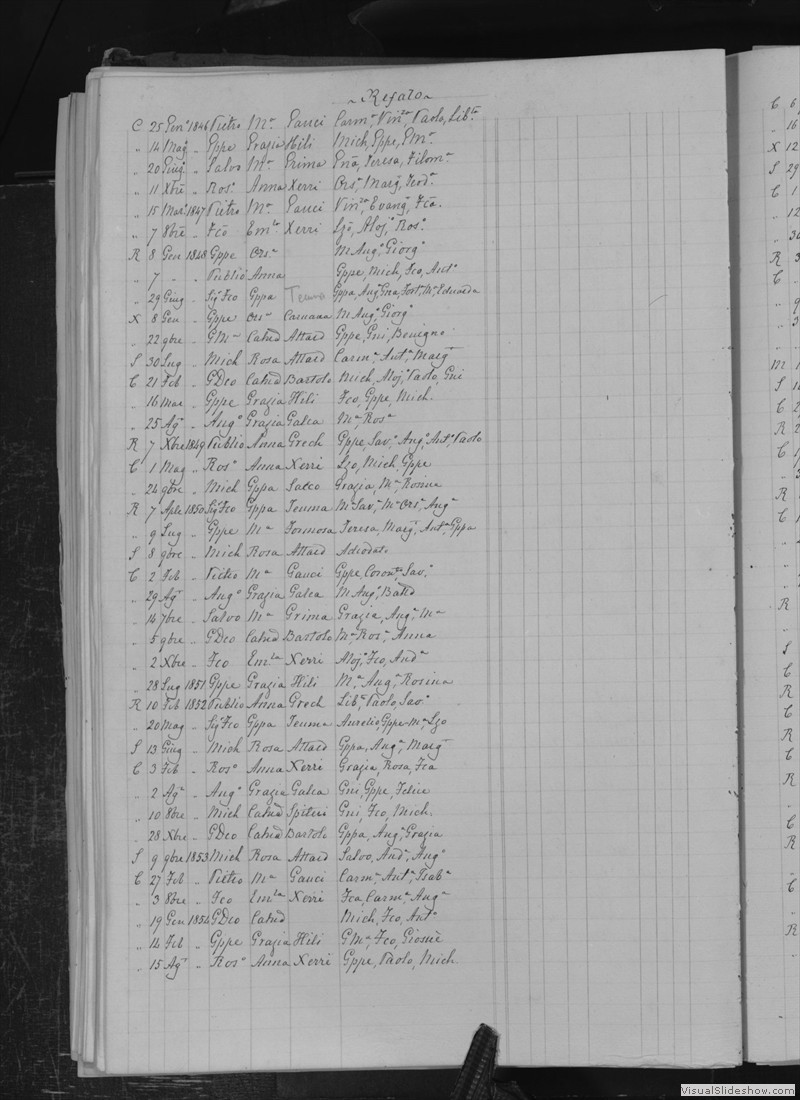 ~ Refalo ~
C 25 Gen° 1846 Pietro Mª Gauci Carmª, Vinzª, Paolo, Libtª
" 14 Mag° " Gppe Grazia Hili Mich, Gppe, GMª.
" 20 Giug° " Salvo Mª Grima Teresa, Filomª
" 11 Xbre " Ros° Anna Xerri Orsª, Margª, Ferdª.
" 15 Mar° 1847 Pietro Mª Gauci Vinzª, Evangª, Fca.
" 7 8bre " Fco Emlª Xerri Lzo, Aloj°, Ros°.
R 8 Gen 1848 Gppe Orsª M Aug°, Giorg°
" 7 " " Publio Anna Gppe, Mich, Fco, Ant°
" 29 Giug " Sigr Fco Gppa Teuma Gppa, Angª, Fortª, Mª, Eduarda
X 8 Gen " Gppe Orsª Caruana M Aug°, Giorg°
" 22 9bre " GMª Catnd Attard Gppe, Gni, Benigno
S 30 Lug " Mich Rosa Attard Carmª, Antª, Margª
C 21 Feb " GDeo Catnd Bartolo Mich, Aloj°, Paolo, Gni
" 16 Mar " Gppe Grazia Hili Fco, Gppe, Mich.
" 25 Ag° " Ang° Grazia Galea Mª, Rosª
R 7 Xbre 1849 Publio Anna Grech Gppe, Sav°, Ang°, Ant°, Paolo
C 1 Mag " Ros° Anna Xerri Lzo, Mich, Gppe
" 24 9bre " Mich Gppa Grazia, Mª, Rosina
R 7 Aple 1850 Sigr Fco Gppa Teuma Mª Savª, Mª Orsª, Angª
" 9 Lug " Gppe Mª Formosa Teresa, Margª, Antª, Gppa
S 8 9bre " Mich Rosa Attard Adeodato
C 2 Feb " Pietro Mª Gauci Gppe, Coron, Sav°
" 29 Ag° " Ang° Grazia Galea M Aug°, Batta
" 14 7bre " Salvo Mª Grima Grazia, Angª, Mª
" 5 9bre " GDeo Catnd Bartolo Mª Rosª, Anna
" 2 Xbre " Fco Emlª Xerri Aloj°, Fco, Andª
" 28 Lug 1851 Gppe Grazia Hili Mª, Angª, Rosina
R 10 Feb 1852 Publio Anna Grech Lib°, Paolo, Sav°
" 20 Mag " Sigr Fco Gppa Teuma Aurelio, Gppe Mª, Lzo
S 13 Giug " Mich Rosa Attard Gppa, Angª, Margª
C 3 Feb " Ros° Anna Xerri Grazia, Rosa, Fca
" 2 Ag° " Ang° Grazia Galea Gni, Gppe, Felice
" 10 8bre " Mich Catnd Spiteri Gni, Fco, Mich.
" 28 Xbre " GDeo Catnd Bartolo Gppa, Angª, Grazia
S 9 9bre 1853 Mich Rosa Attard Salvo, Andª, Ang°
C 27 Feb " Pietro Mª Gauci Carmª, Antª, Isabª
" 3 8bre " Fco Emlª Xerri Fca, Carmª, Angª
" 19 Gen 1854 GDeo Catnd Mich, Fco, Ant°
" 14 Feb " Gppe Grazia Hili GMª, Fco, Giosuè
" 15 Ag° " Ros° Anna Xerri Gppe, Paolo, Mich.
VisualSlideshow.com